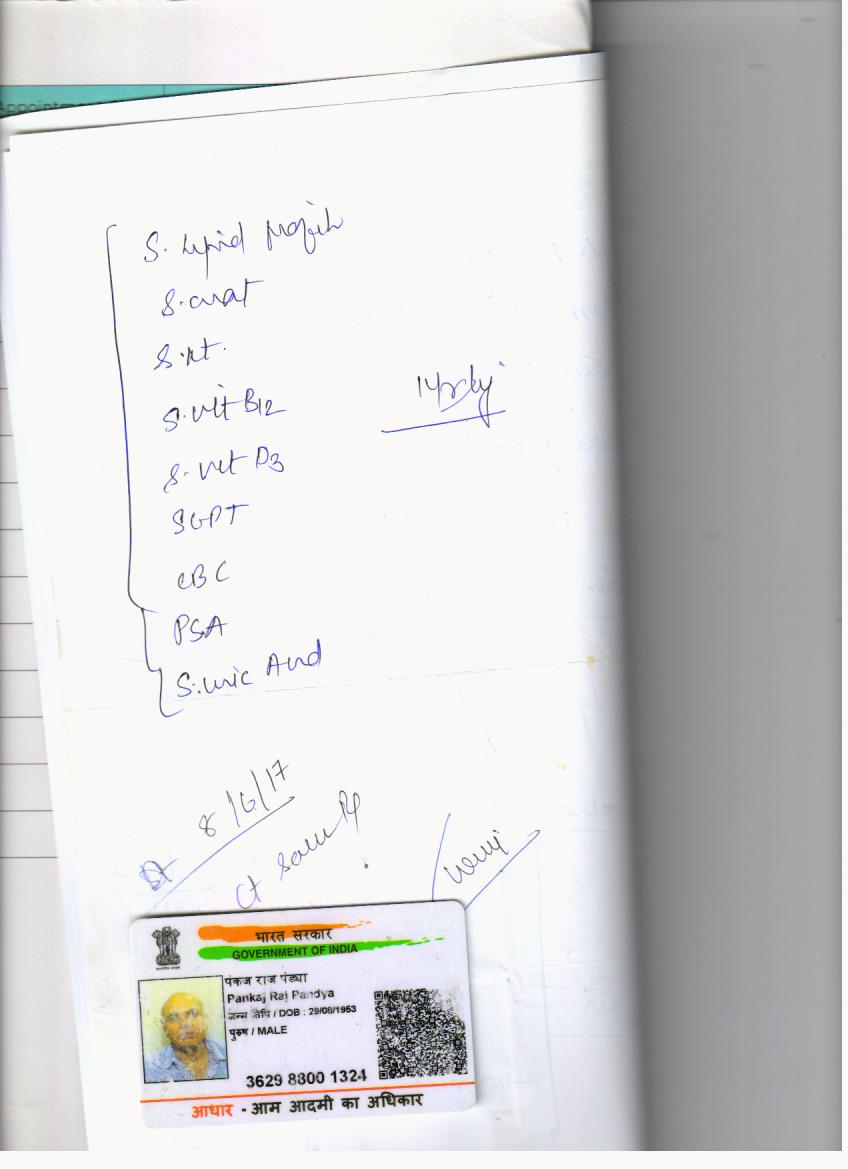 Appointm
S. Lipid Profile
S. creat
S. Vit B12
S. Vit D3
SGPT
CBC
PSA
S. Uric Acid
8/6/17
भारत सरकार
GOVERNMENT OF INDIA
पंकज राज पंड्या
Pankaj Raj Pandya
जन्म तिथि / DOB : 29/08/1953
पुरुष / MALE
3629 8800 1324
आधार - आम आदमी का अधिकार